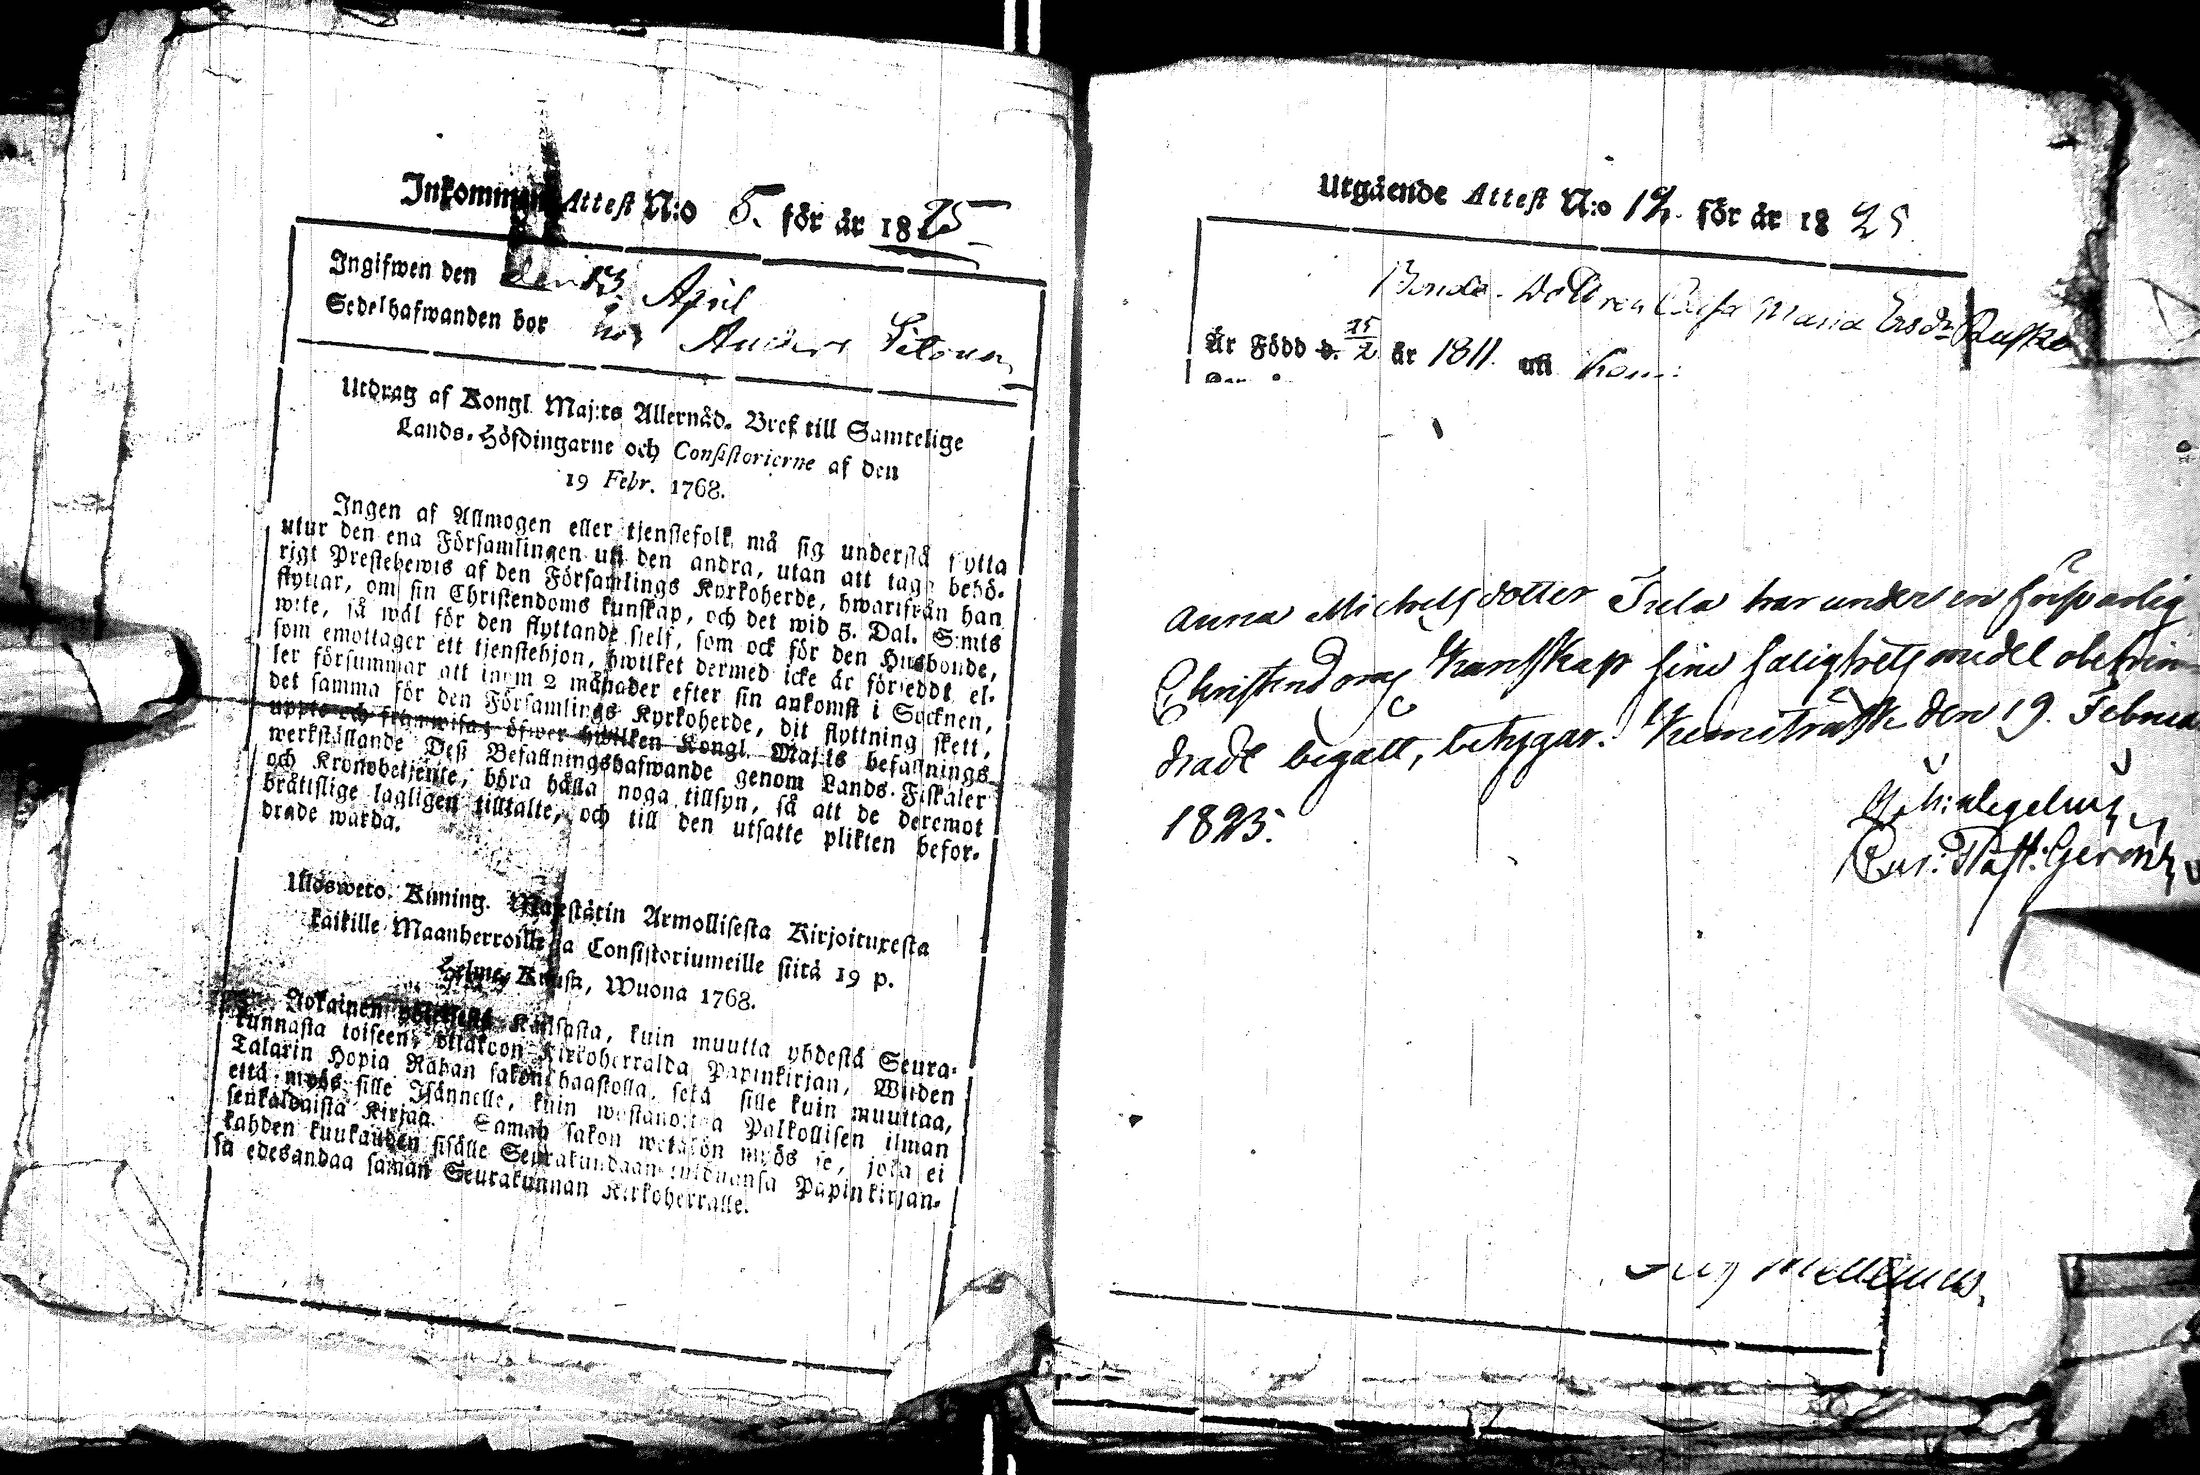 Inkommen Attest N:o 5. för år 1825
Ingifwen den 13 April
Sedelhafwanden bor hos Anders
Utdrag af Kongl. Maj:ts Allernåd. Bref till Samtelige
Lands-Höfdingarne och Consistorierne af den
19 Febr. 1768.
Ingen af Allmogen eller tjenstefolk må sig understå flytta
utur den ena Församlingen uti den andra, utan att taga behö-
rigt Prestebewis af den Församlings Kyrkoherde, hwarifrån han
flyttar, om sin Christendoms kunskap, och det wid 5. Dal. S:mts
wite, så wäl för den flyttande sielf, som ock för den Husbonde,
som emottager ett tjenstehjon, hwilket dermed icke är försedt el-
ler försummar att inom 2 månader efter sin ankomst i Socknen,
det samma för den Församlings Kyrkoherde, dit flyttning skett,
uppte och framwisa; öfwer hwilken Kongl. Maj:ts befallnings
werkställande Deß Befallningshafwande genom Lands-Fiskaler
och Kronobetjente, böra hålla noga tillsyn, så att de deremot
bråttslige lagligen tilltalte, och till den utsatte plikten befor-
drade warda.
Ulosweto. Kuning. Majestätin Armollisesta Kirjoituxesta
kaikille Maanherroille ja Consistoriumeille siitä 19 p.
Helme-Kuusa, Wuona 1768.
Jokainen Kansasta, kuin muutta yhdestä Seura-
kunnasta toiseen, ottakoon Kirkoherralda Papinkirjan, Wiiden
Talarin Hopia Rahan sakon haastolla, sekä sille kuin muuttaa,
että myös sille Isännelle, kuin wastanottaa Palkollisen ilman
senkaldaista Kirjaa. Saman sakon wetäkön myös se, joka ei
kahden kuukauden sisälle Seurakundaan tulduansa Papinkirjan-
sa edesandaa saman Seurakunnan Kirkoherralle.
Utgående Attest N:o 12. för år 1825
Bonde-Dottren Maria Ersdr
Är Född d. 25/2 år 1811. uti Kemi
Anna Michelsdotter har under en förswarlig
Christendoms Kunskap sine salighets medel obehin-
drade begått, betygar. Kemiträsk den 19. Februari
1825.
Joh: Wegelius
Past:
Mellenius.